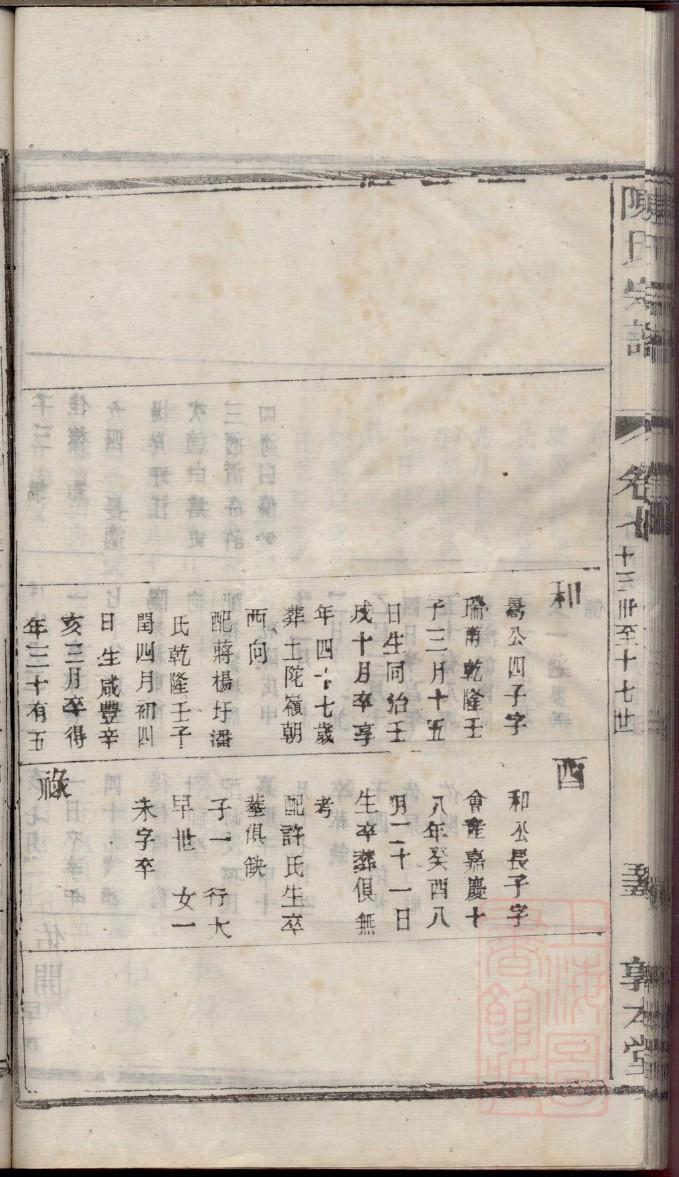 陳氏宗譜
卷七
十三卅至十七世
敦本堂
和
公四子字
瑞甫乾隆壬
子三月十五
日生同治壬
戌十月卒享
年四十七歲
葬土陀嶺朝
西向
配蔣楊圩潘
氏乾隆壬子
閏四月初四
日生咸豐辛
亥三月卒得
年三十有五
酉
和公長子字
會產嘉慶十
八年癸酉八
月二十一日
生卒葬俱無
考
配許氏生卒
塟俱缺
子一 行大
早世 女一
未字卒
祿
上海圖書館藏